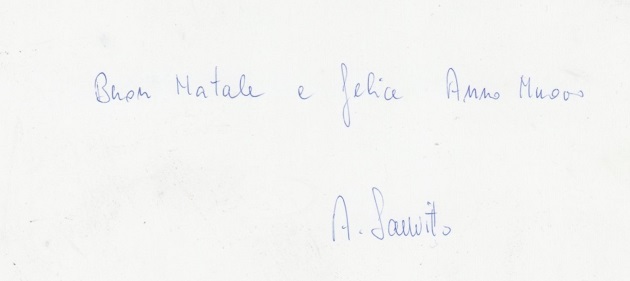 Buon Natale e felice Anno Nuovo
A. Sanvito